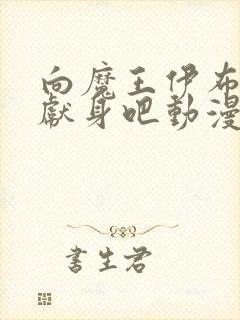 向魔王伊布
獻身吧動漫
書生君